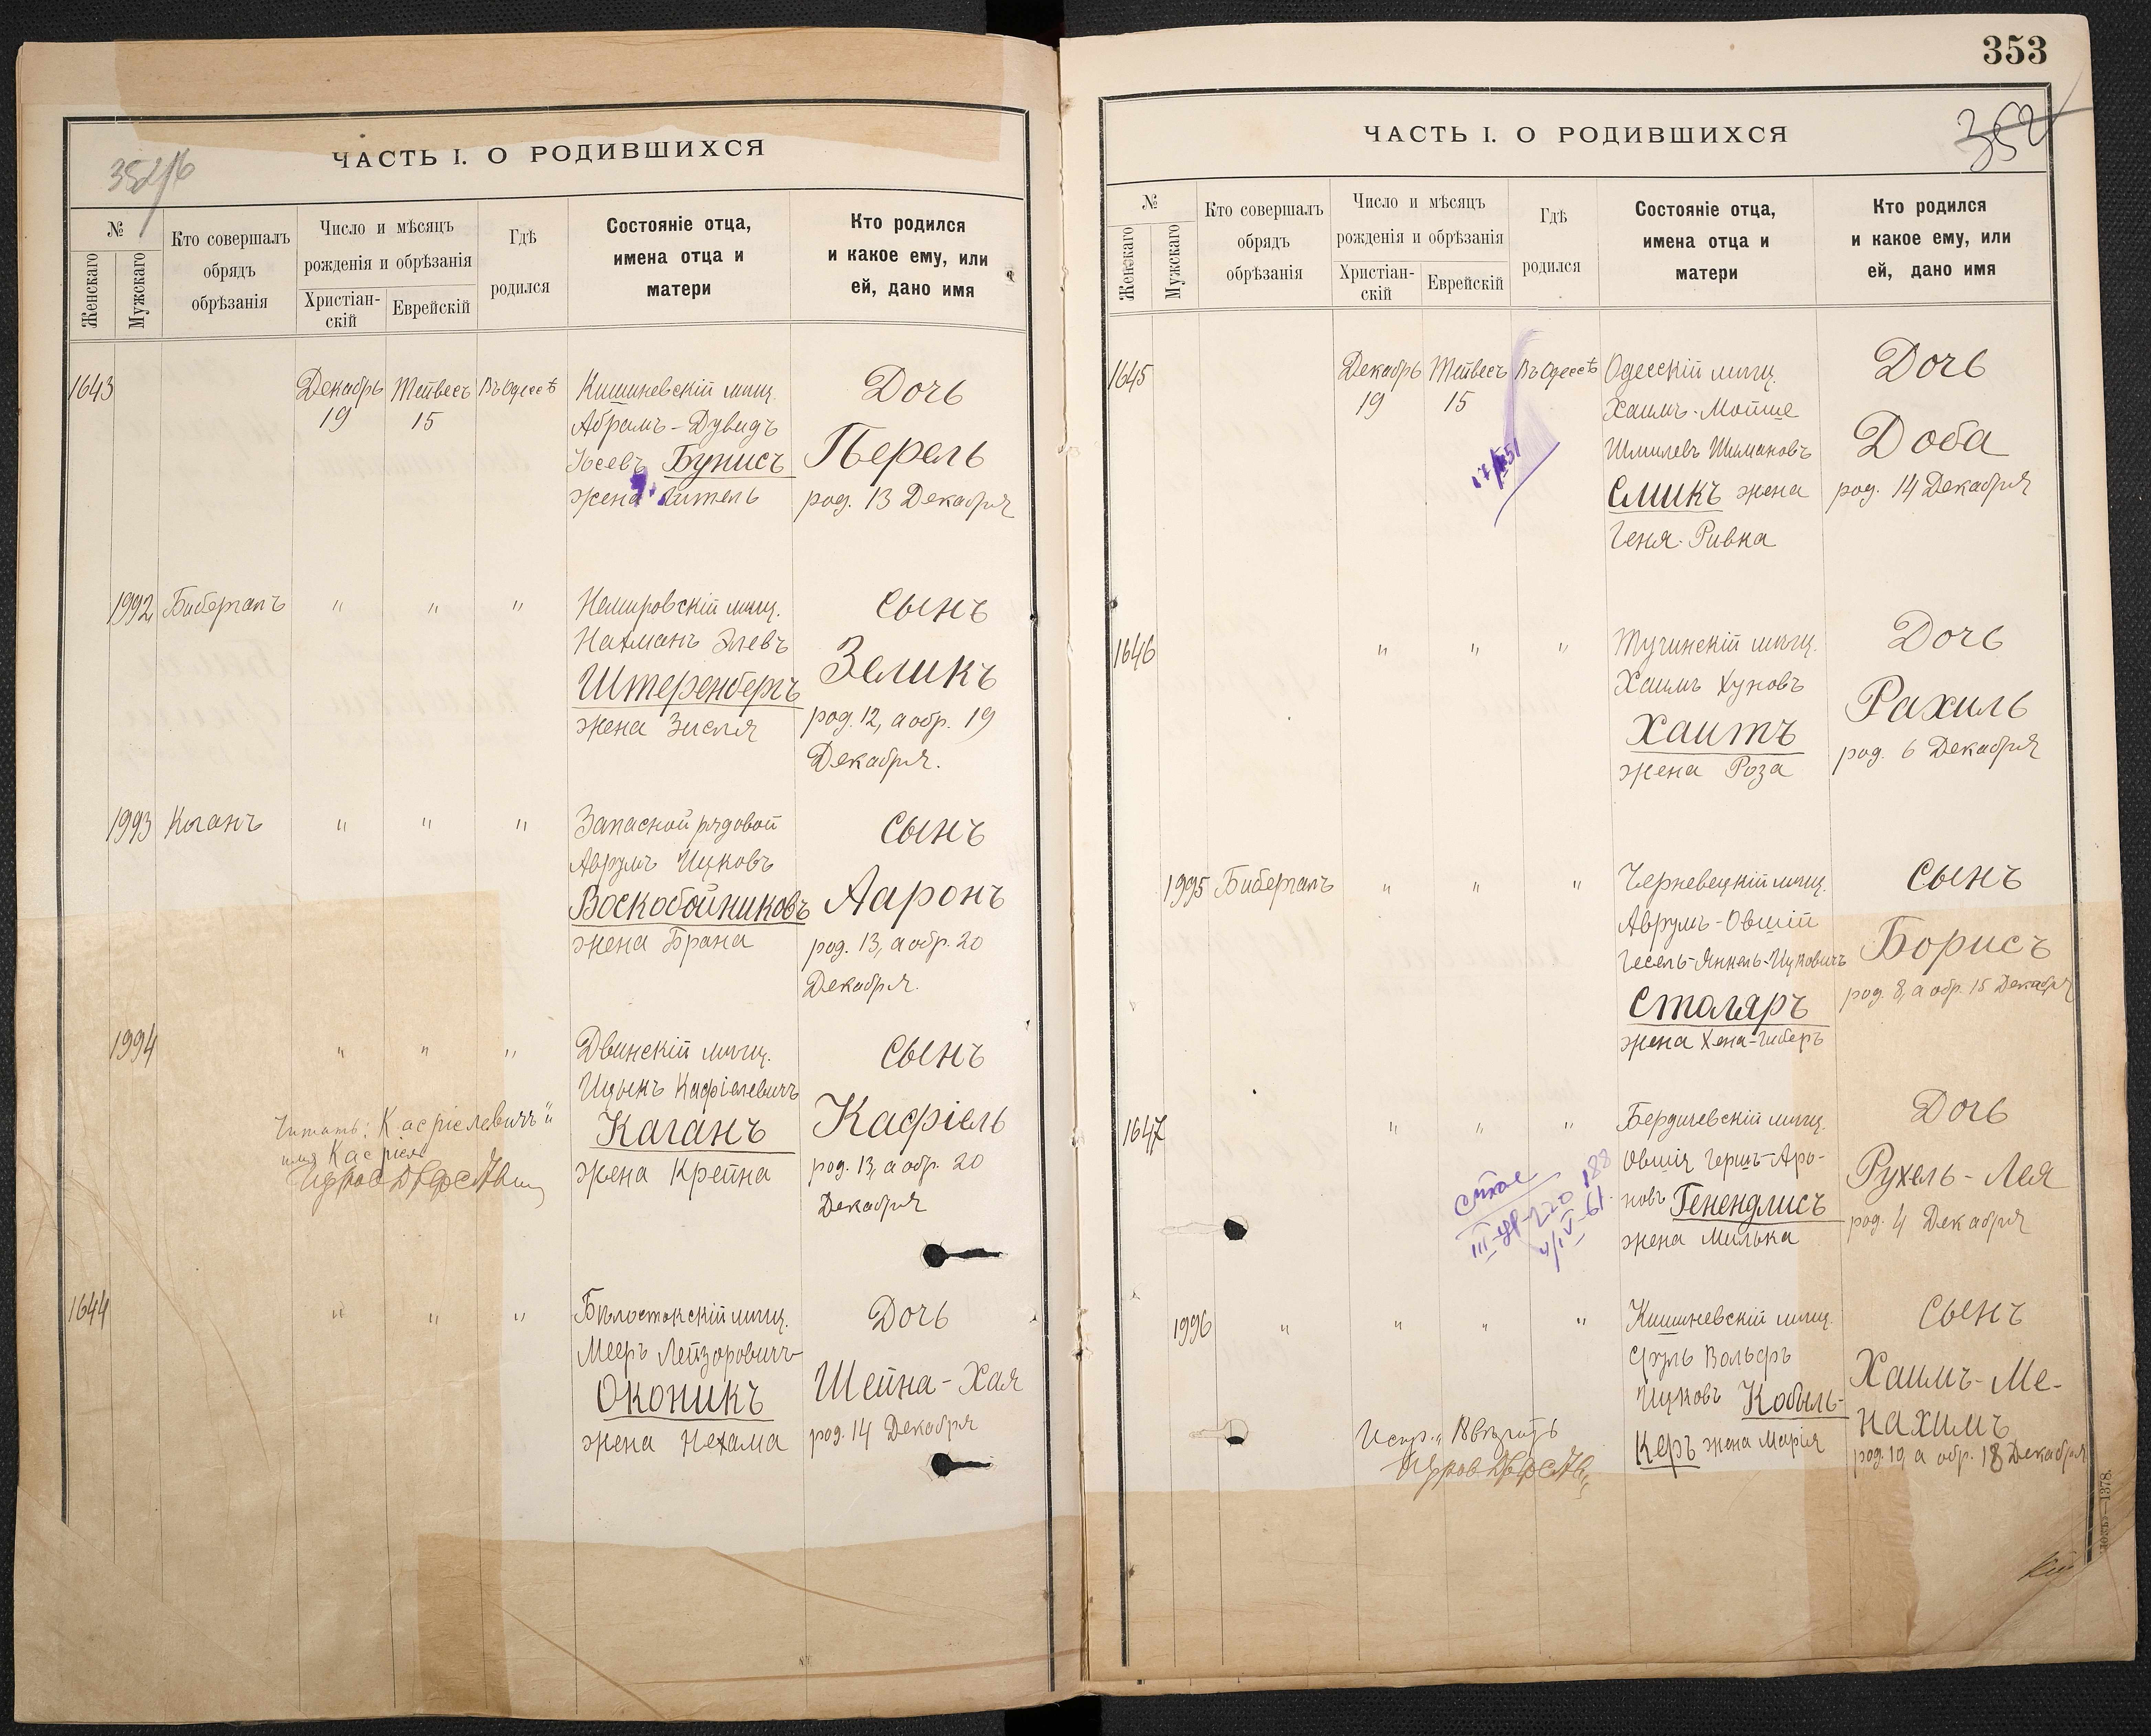 ЧАСТЬ I. О РОДИВШИХСЯ
№
Женскаго
Мужскаго
Кто совершалъ
обрядъ
обрѣзанія
Число и мѣсяцъ
рожденія и обрѣзанія
Христіан-
скій
Еврейскій
Гдѣ
родился
Состояніе отца,
имена отца и
матери
Кто родился
и какое ему, или
ей, дано имя
1643
Декабрь
19
Тейвесъ
15
Въ Одессѣ
Кишиневскій мѣщ.
Абрамъ-Дувидъ
Бунисъ
жена
Дочь
Перель
род. 13 Декабря
1992
Бибергалъ
" " "
Немировскій мѣщ.
Нахманъ Элевъ
Штеренбергъ
жена Зисля
Сынъ
Зеликъ
род. 12, а обр. 19
Декабря.
1993
Коганъ
" " "
Запасной рядовой
Аврумъ Ицковъ
Воскобойниковъ
жена Брана
Сынъ
Ааронъ
род. 13, а обр. 20
Декабря.
1994
" " "
Двинскій мѣщ.
Ицыкъ Кафріелевичъ
Каганъ
жена Крейна
Сынъ
Кафріель
род. 13, а обр. 20
Декабря
Читать: Касріелевичъ и
имя Касріель
1644
" " "
Бѣлостокскій мѣщ.
Мееръ Лейзоровичъ
Оконикъ
жена Нехама
Дочь
Шейна-Хая
род. 14 Декабря
353
352
ЧАСТЬ I. О РОДИВШИХСЯ
№
Женскаго
Мужскаго
Кто совершалъ
обрядъ
обрѣзанія
Число и мѣсяцъ
рожденія и обрѣзанія
Христіан-
скій
Еврейскій
Гдѣ
родился
Состояніе отца,
имена отца и
матери
Кто родился
и какое ему, или
ей, дано имя
1645
Декабрь
19
Тейвесъ
15
Въ Одессѣ
Одесскій мѣщ.
Хаимъ-Мойше
Шмилевъ Шимановъ
Смикъ жена
Геня-Ривка
Дочь
Доба
род. 14 Декабря
1646
" " "
Тучинскій мѣщ.
Хаимъ Хуновъ
Хаитъ
жена Роза
Дочь
Рахиль
род. 6 Декабря
1995
Бибергалъ
" " "
Черневецкій мѣщ.
Аврумъ-Овшій
Гесель-Янкель-Ицковичъ
Столяръ
жена
Сынъ
Борисъ
род. 8, а обр. 15 Декабря
1647
" " "
Бердичевскій мѣщ.
Овшія Гершъ-Аро-
новъ Генендлисъ
жена Милька
Дочь
Рухель-Лея
род. 4 Декабря
1996
" " " "
Кишиневскій мѣщ.
Сруль Вольфъ
Ицковъ Кобыль-
керъ жена Марія
Сынъ
Хаимъ-Ме-
нахимъ
род. 10, а обр. 18 Декабря